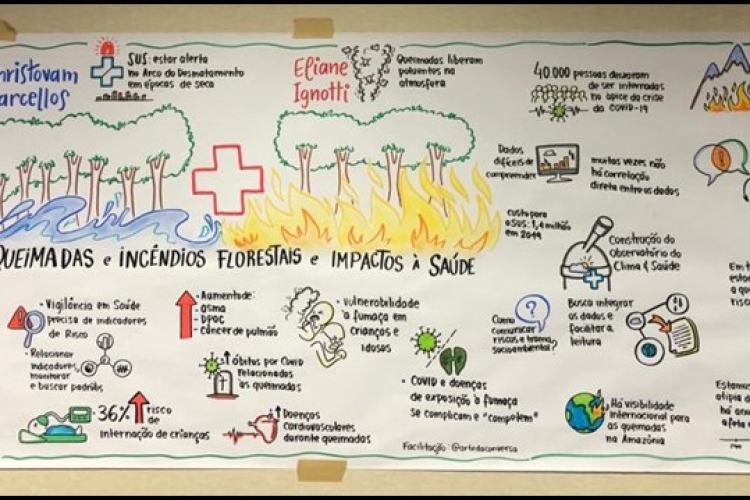 hristovam
arcellos
SUS: estar alerta
no Arco do Desmatamento
em épocas de seca
Eliane
Ignotti
Queimadas liberam
poluentes na
atmosfera
40.000 pessoas deixaram
de ser internadas
no ápice da crise
da COVID-19
Dados
difíceis de
compreender
muitas vezes não
há correlação
direta entre os dados
custo para
o SUS: 1,4 milhão
em 2019
Construção do
Observatório do
Clima & Saúde
QUEIMADAS e INCÊNDIOS FLORESTAIS e IMPACTOS À SAÚDE
• Vigilância em Saúde
precisa de indicadores
de Risco
• Relacionar
indicadores,
monitorar
e buscar padrões
• 36% risco
de
internação de crianças
• Aumento de:
- asma
- DPOC
- câncer de pulmão
• Óbitos por Covid
relacionados
às queimadas
Doenças
Cardiovasculares
durante queimadas
• vulnerabilidade
à fumaça em
crianças e
idosos
• COVID e doenças
de exposição à fumaça
se complicam e "competem"
Facilitação: @artedaconversa
Como
comunicar
riscos e trauma
socioambiental?
Busca integrar
os dados e
facilitar a
leitura
Há visibilidade
internacional para
as queimadas
na Amazônia
Em t
esta
a qu
risc
Estamo
atípia d
há an
a feta